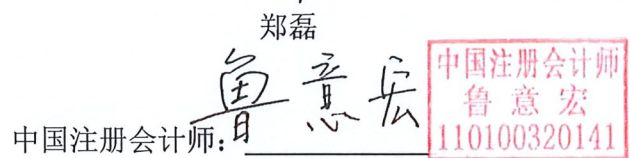 郑磊
中国注册会计师：鲁意宏
中国注册会计师
鲁意宏
110100320141